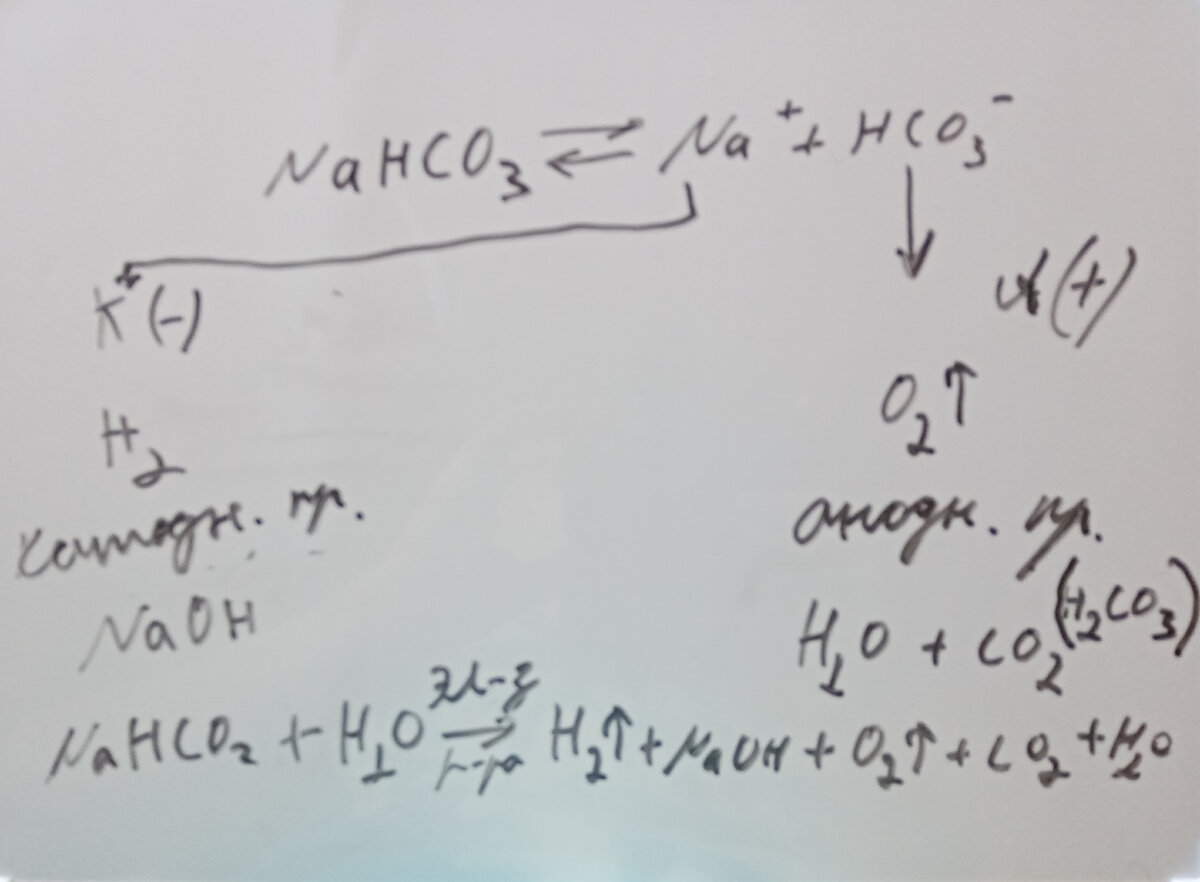 NaHCO₃ ⇄ Na⁺ + HCO₃⁻
K⁺(-) A(+)
H₂ O₂↑
катодн. пр. анодн. пр.
NaOH H₂O + CO₂ (H₂CO₃)
NaHCO₂ + H₂O эл-з → р-ра H₂↑ + NaOH + O₂↑ + CO₂ + H₂O